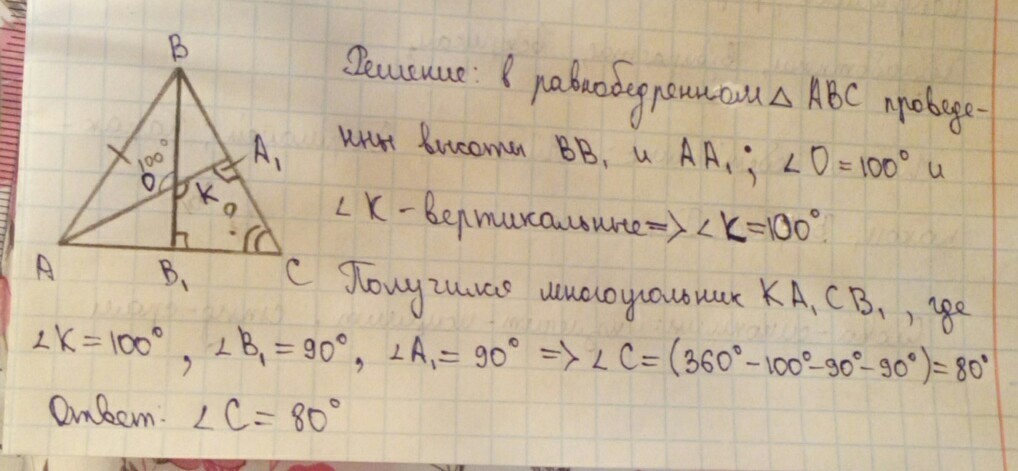 B
Решение: в равнобедренном △ ABC проведе-
100°
O
K
A₁
?
нны высоты BB₁ и AA₁; ∠O = 100° и
∠K - вертикальные => ∠K = 100°.
A
B₁
C
Получился многоугольник KA₁CB₁, где
∠K = 100°, ∠B₁ = 90°, ∠A₁ = 90° => ∠C = (360° - 100° - 90° - 90°) = 80°
Ответ: ∠C = 80°